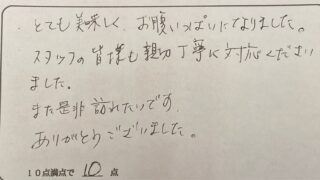 とても美味しく、お腹いっぱいになりました。
スタッフの皆様も親切丁寧に対応ください
ました。
また是非訪れたいです。
ありがとうございました。
10点満点で 10 点